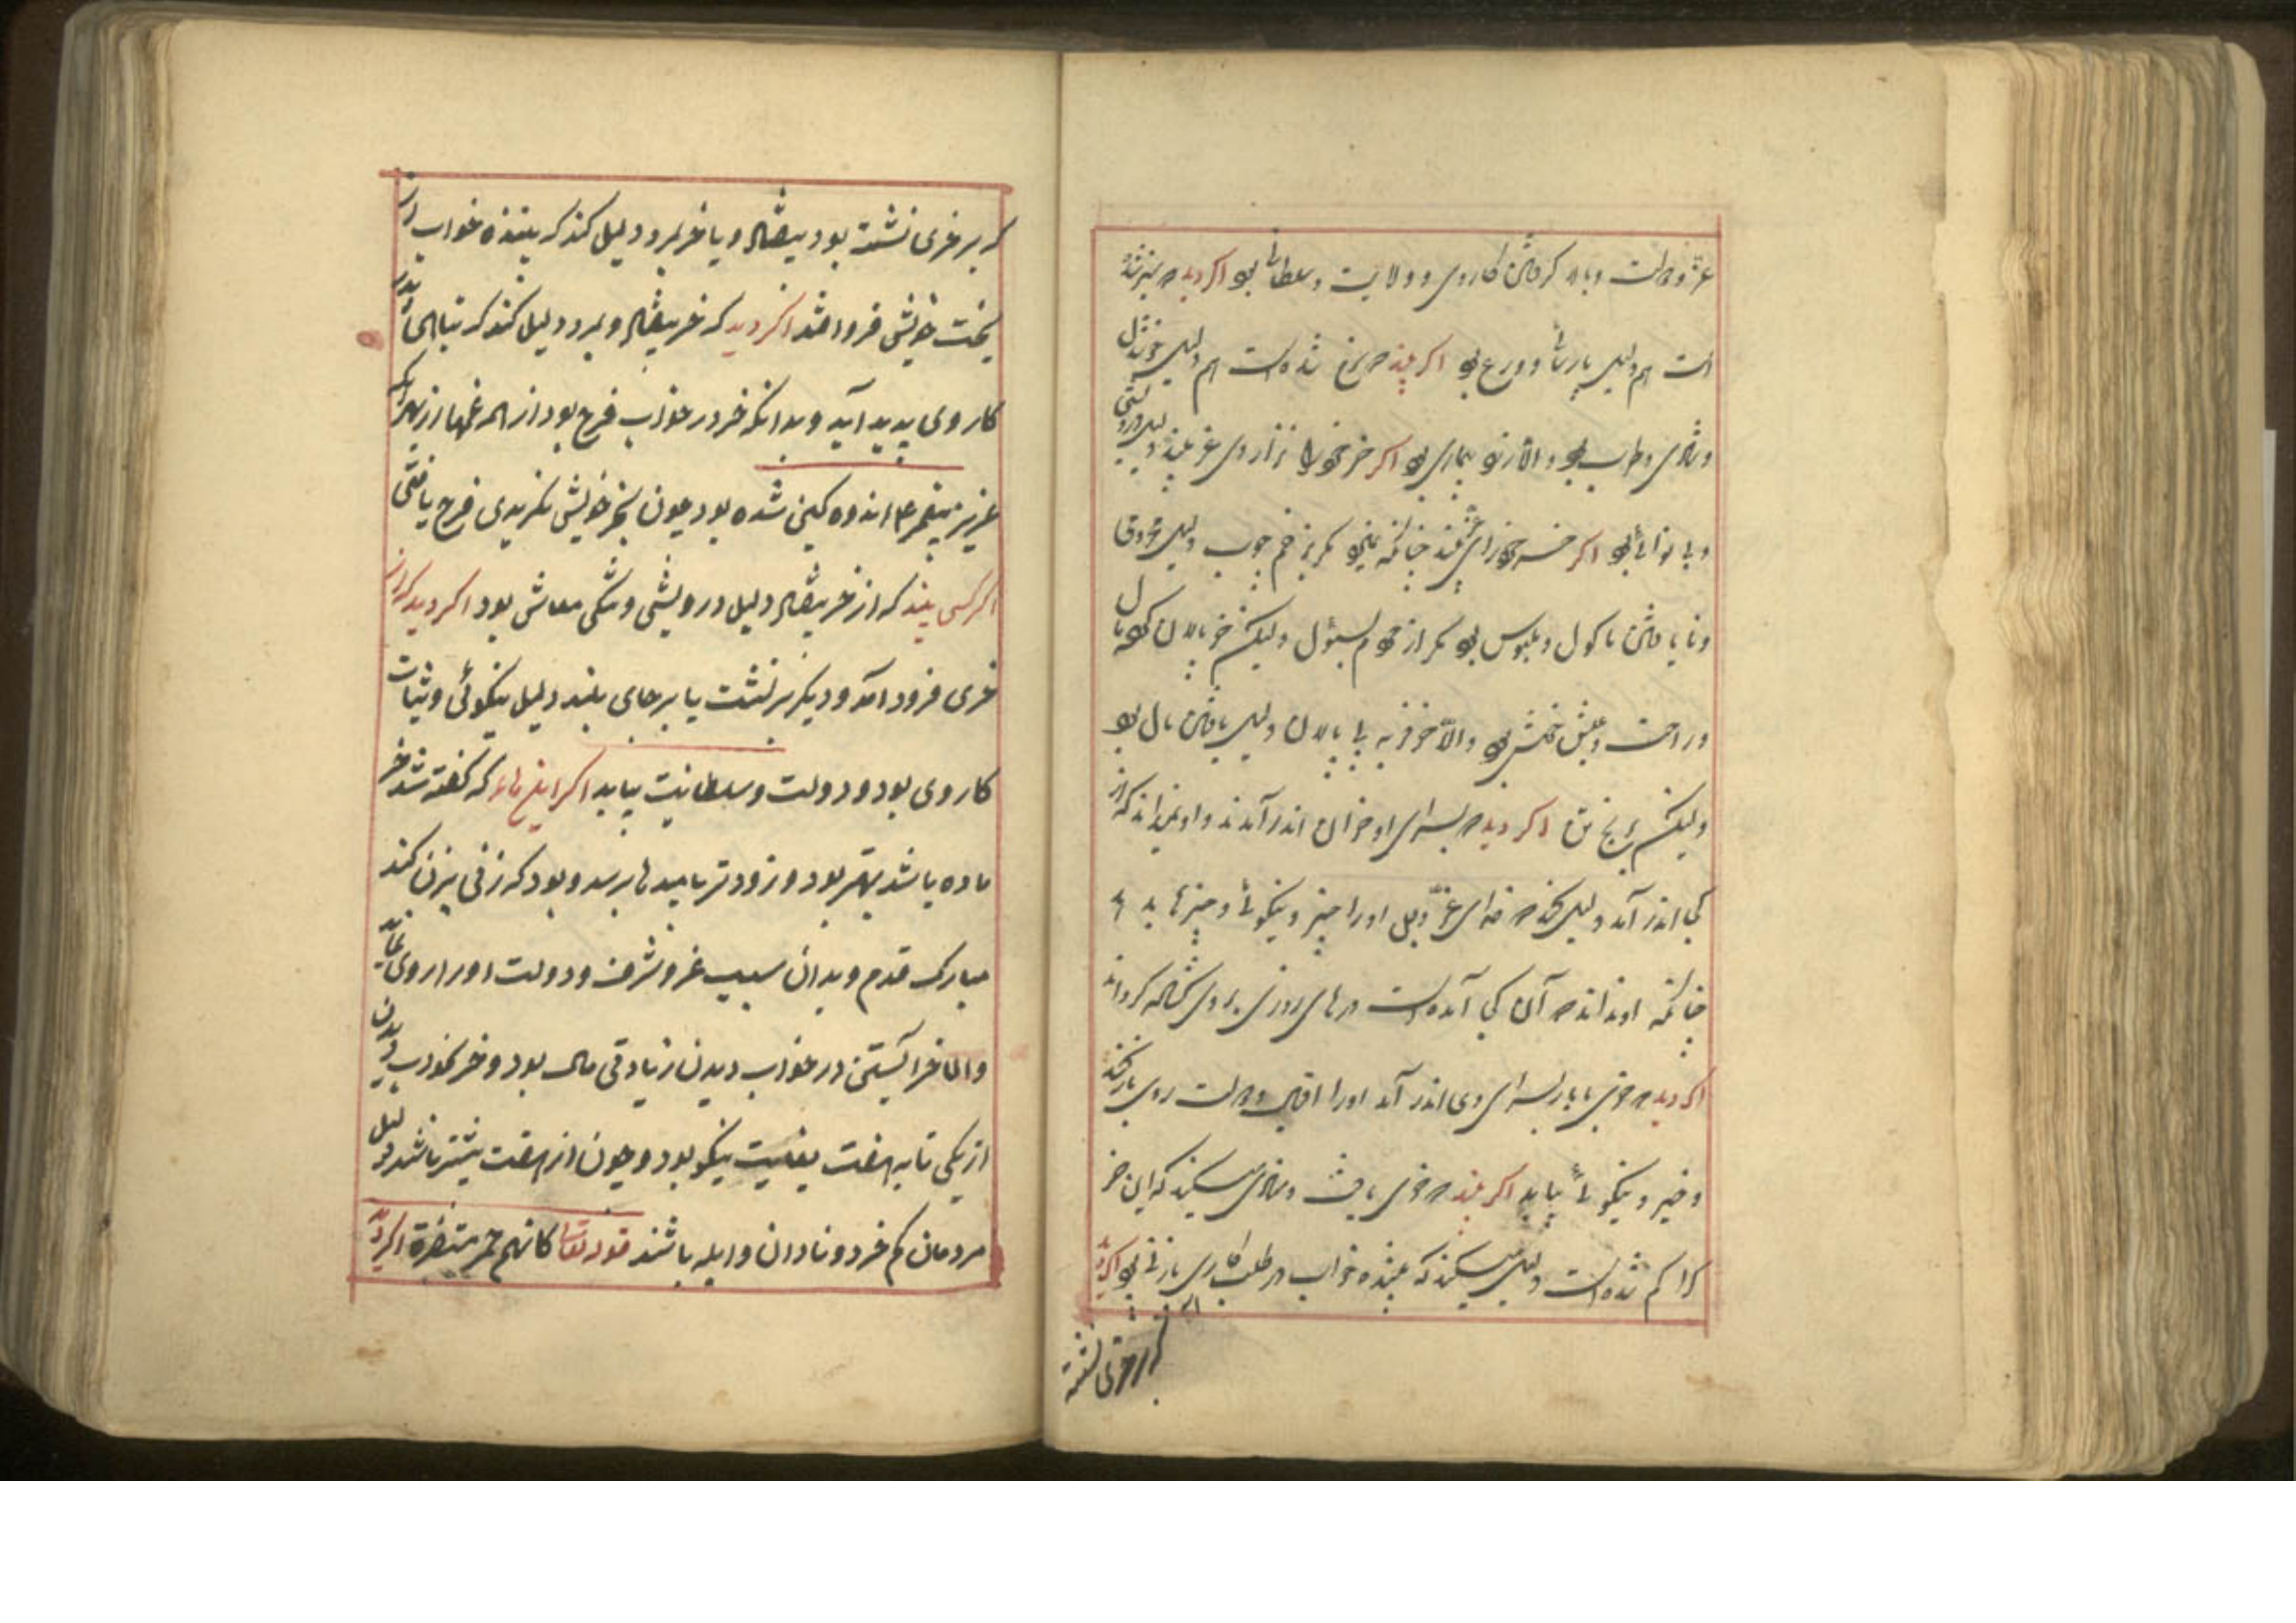 عز و دولت و بالا گرفتن کار وی و ولایت و سلطانی بود اگر دید که سبز شده
است هم دلیل پارسائی و ورع بود اگر بیند که سرخ شده است هم دلیل خوشدلی
و شادی و طرب بود و الا زرد بیماری بود اگر خر خود را نزار و لاغر بیند دلیل درویشی
و بی نوائی بود اگر خسر خود را بیند چنانکه نمیرود مگر بزخم چوب دلیل
و نا یافتن ماکول و ملبوس بود مگر از ولیکن خر با پالان که
و راحت و عیش خوش بود و الا خر فربه بی پالان دلیل یافتن مال بود
ولیکن برنج تن اگر دید که بسرای او خران اندر آمدند و او نمیداند که از
کجا اندر آمد دلیل کند که خدای عز و جل او را خیر و نیکوئی و چیزها بدهد
چنانکه او نداند که آن از کجا آمده است درهای روزی بر وی گشاده گرداند
اگر دید که خری با بار بسرای وی اندر آمد او را اقبال و دولت روی باز کند
و خیر و نیکوئی بیابد اگر بیند که خری یافت و منادی میکند که این خر
کرا گم شده است دلیل میکند که بیننده خواب در طلب کاری یا زنی بود اگر دید
که بر خری نشسته
که بر خری نشسته بود بیفتاد و یا خر بمرد دلیل کند که بیننده خواب از
تخت خویش فرو افتد اگر دید که خر بیفتاد و بمرد دلیل کند که تباهی اندر
کار وی پدید آید و بدانکه خر در خواب فرج بود از همه غمها از بهر آنکه
عزیر پیغمبر ع اندوه گین شده بود چون بخر خویش نگریدی فرج یافتی
اگر کسی بیند که از خر بیفتاد دلیل درویشی و تنگی معاش بود اگر دید که از
خری فرود آمد و دیگر برنشست یا بر جای بلند دلیل نیکوئی و ثبات
کار وی بود و دولت و سلطانیت بیابد اگر این که گفته شد خر
ماده باشد بهتر بود و زودتر بامیدها برسد و بود که زنی بزن کند
مبارک قدم و بدان سبب عز و شرف و دولت او را روی نماید
و اما خر آبستن در خواب دیدن زیادتی مال بود و خر بخواب دیدن
از یکی تا به هفت بغایت نیکو بود و چون از هفت بیشتر باشد دلیل
مردمان کم خرد و نادان و ابله باشند قوله تعالی کانهم حمر مستنفرة اگر دید